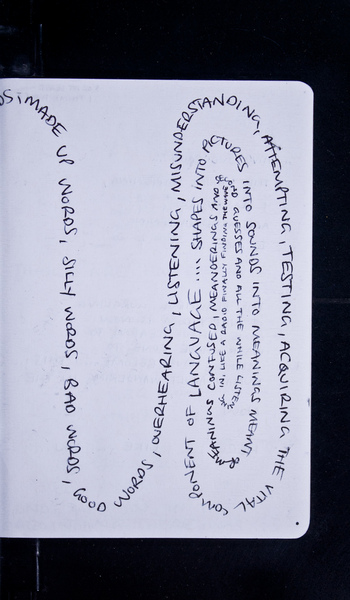 DS; MADE UP WORDS, SILLY WORDS, BAD WORDS, GOOD
WORDS, OVERHEARING, LISTENING, MISUNDERSTANDING,
ATTEMPTING, TESTING, ACQUIRING THE VITAL
COMPONENT OF LANGUAGE .... SHAPES INTO PICTURES
INTO SOUNDS INTO MEANINGS MEANT, &
MEANINGS CONFUSED, MEANDERINGS MAD &
ODD GUESSES AND ALL THE WHILE LISTEN
IN, LIKE A RADIO FINALLY FINDING THE